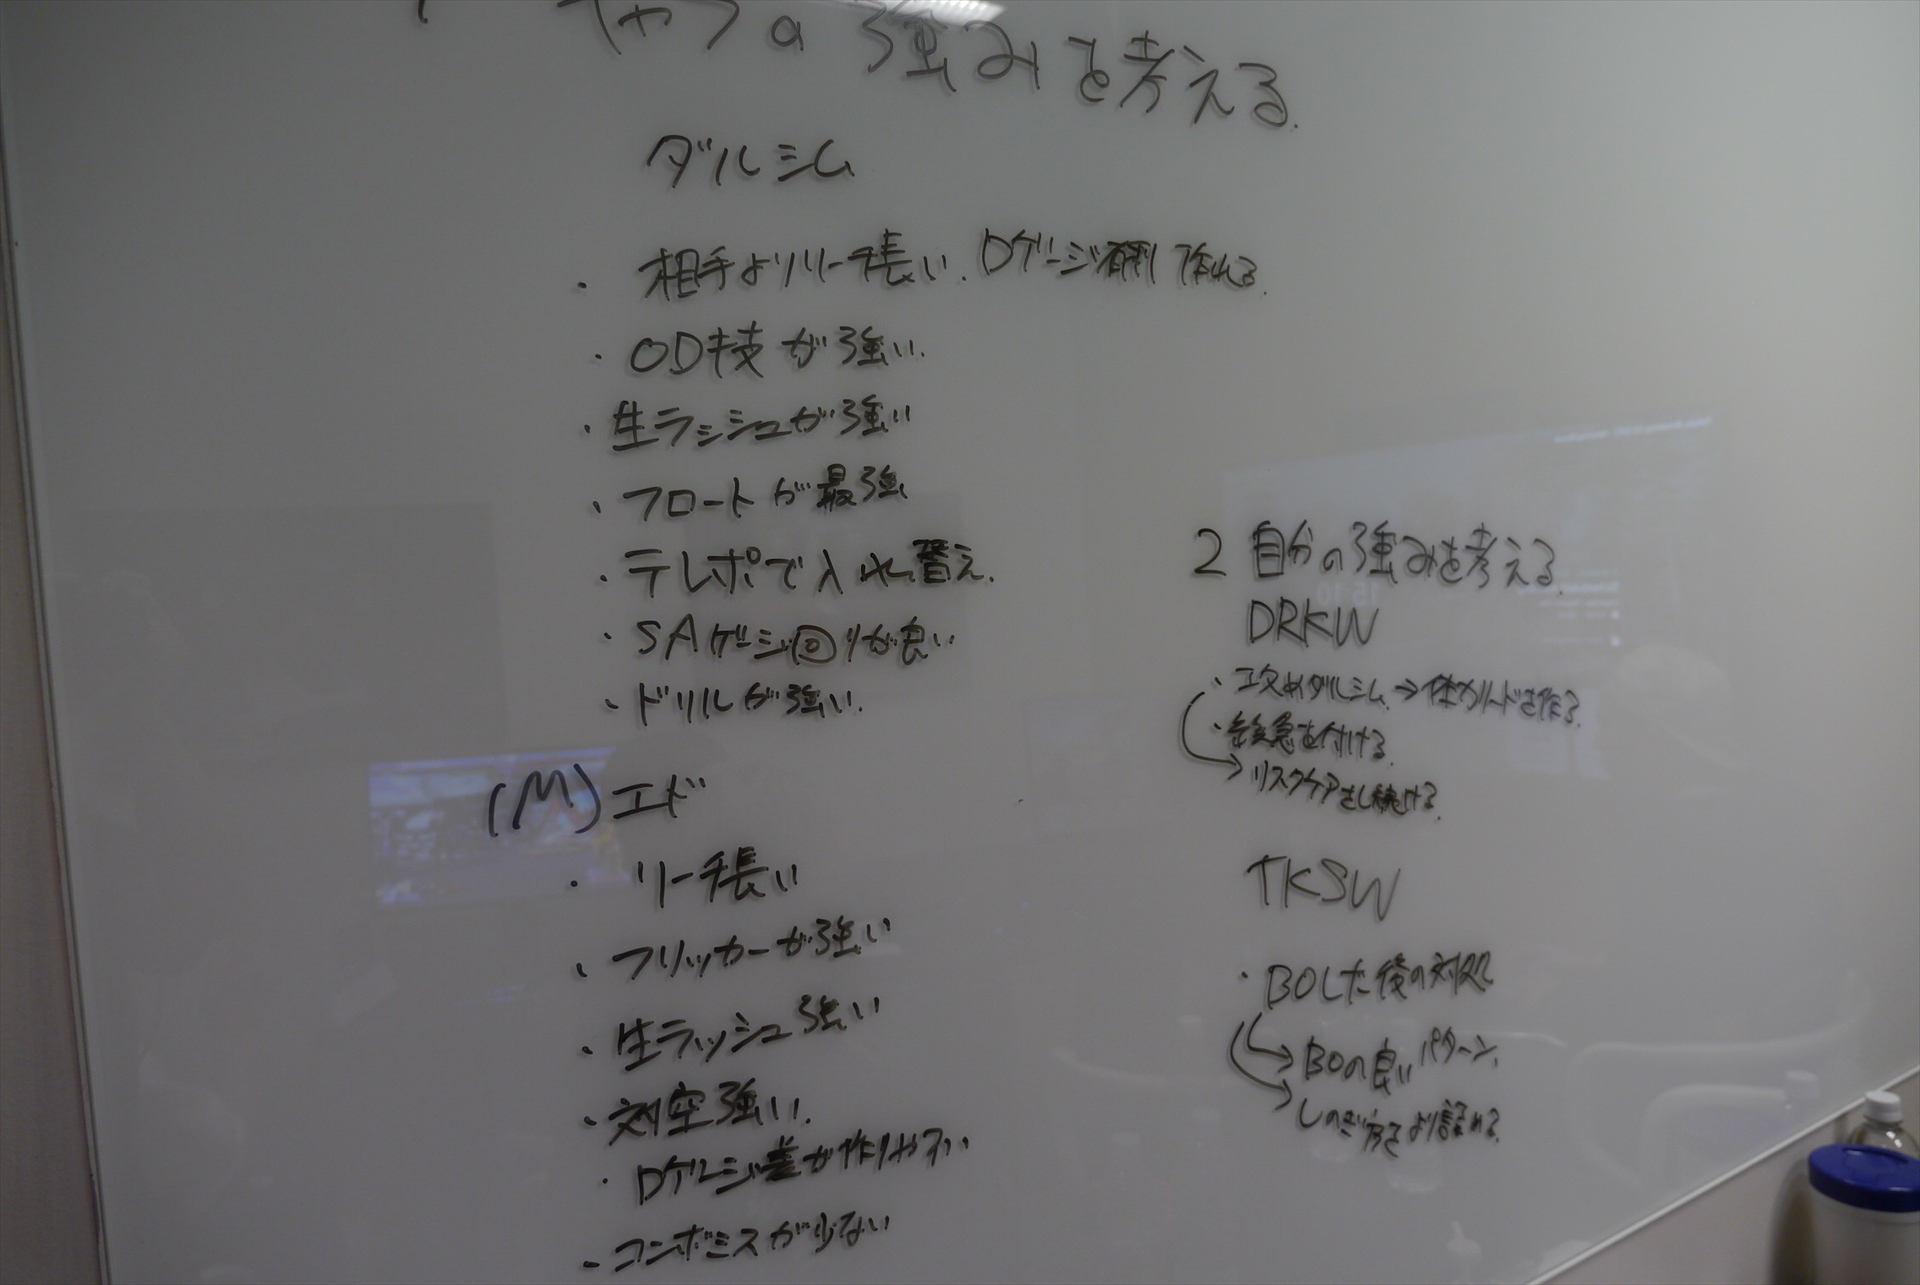 キャラの強みを考える.
ダルシム
・相手よりリーチ長い. Dゲージ有利作れる.
・OD技が強い.
・生ラッシュが強い
・フロートが最強
・テレポで入れ替え.
・SAゲージ回りが良い
・ドリルが強い.
(M) エド
・リーチ長い
・フリッカーが強い
・生ラッシュ強い
・対空強い.
・Dゲージ差が作りやすい
・コンボミスが少ない
2 自分の強みを考える.
DRKW
・攻めダルシム → 体力リードを作る.
・緩急を付ける.
→ リスクケアをし続ける.
TKSW
・BOした後の対処
→ BOの良いパターン.
→ しのぎ方をより詰める.